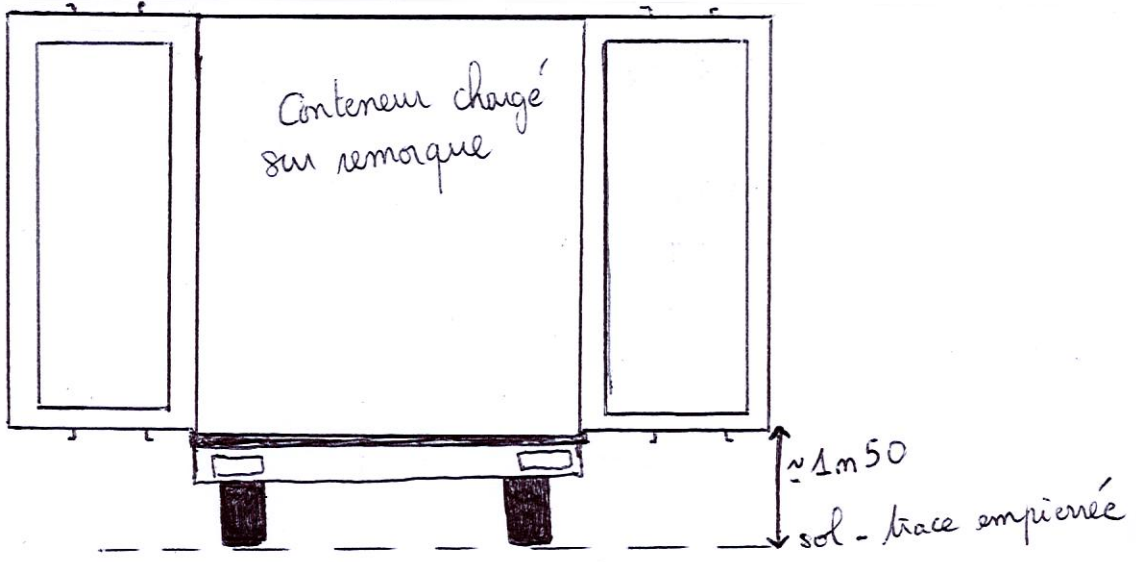 Conteneur chargé
sur remorque
~1m50
sol - trace empierrée